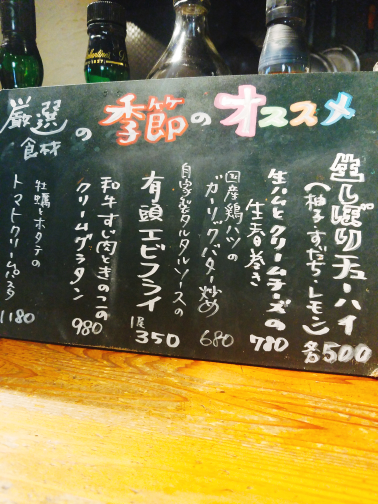 厳選食材の季節のオススメ
生しぼりチューハイ
(柚子・すだち・レモン)各500
生ハムとクリームチーズの
生春巻き 780
国産鶏ハツの
ガーリックバター炒め 680
自家製タルタルソースの
有頭エビフライ 1尾350
和牛すじ肉ときのこの
クリームグラタン 980
牡蠣とホタテの
トマトクリームパスタ 1180